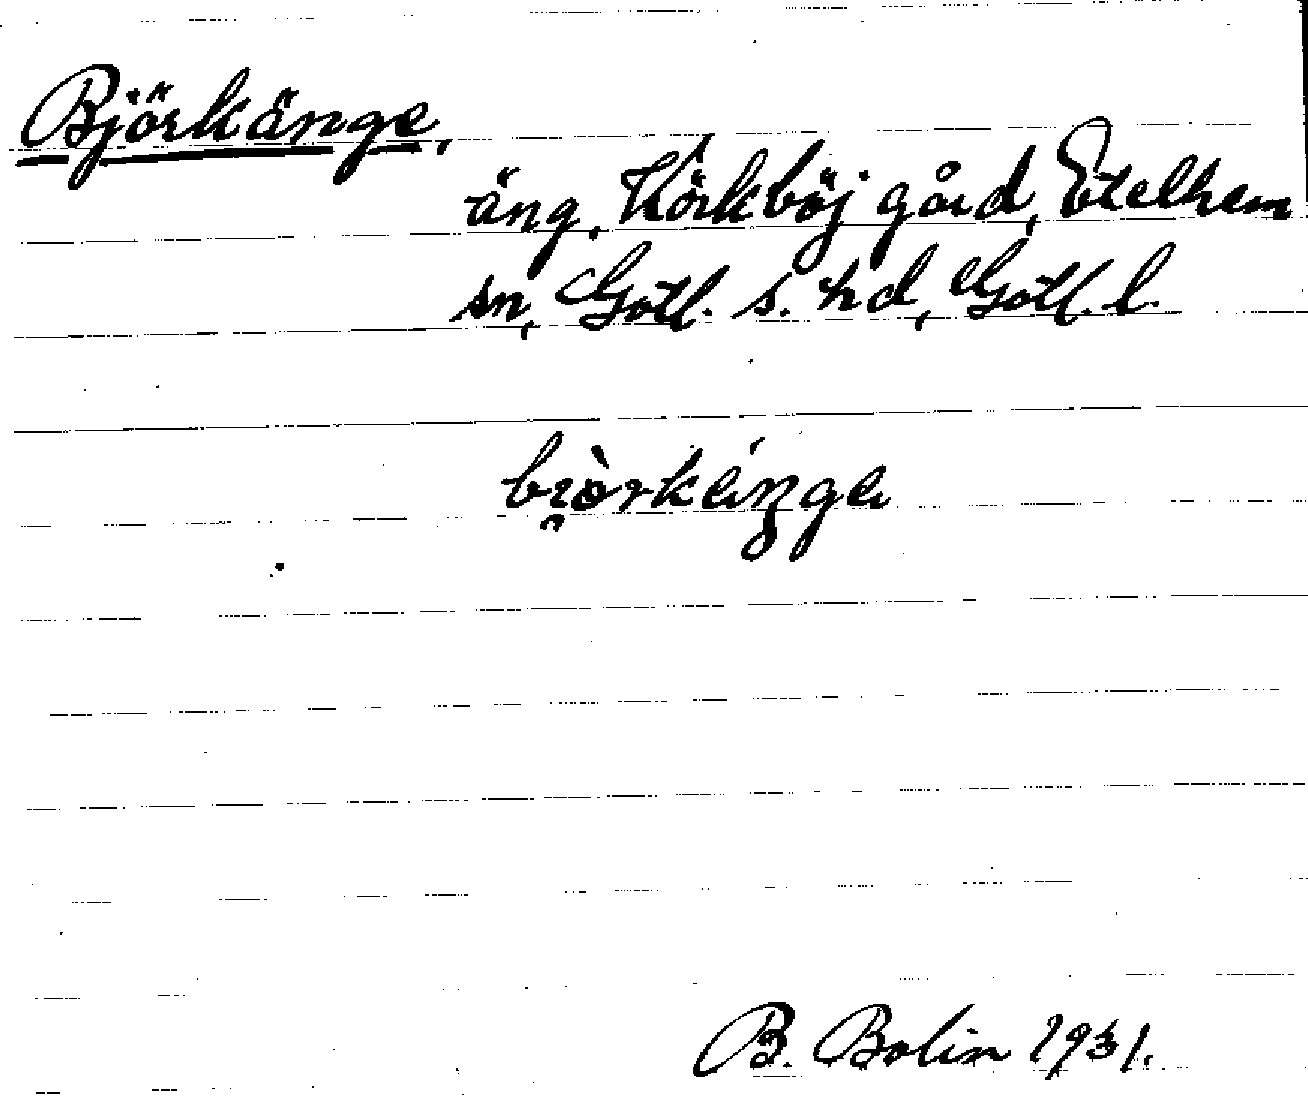 Björkänge,
äng, Hörkböj gård, Etelhem
sn, Gotl. s. hd, Gotl. l.
bi̯òrkä́ŋge
B. Bolin 1931.